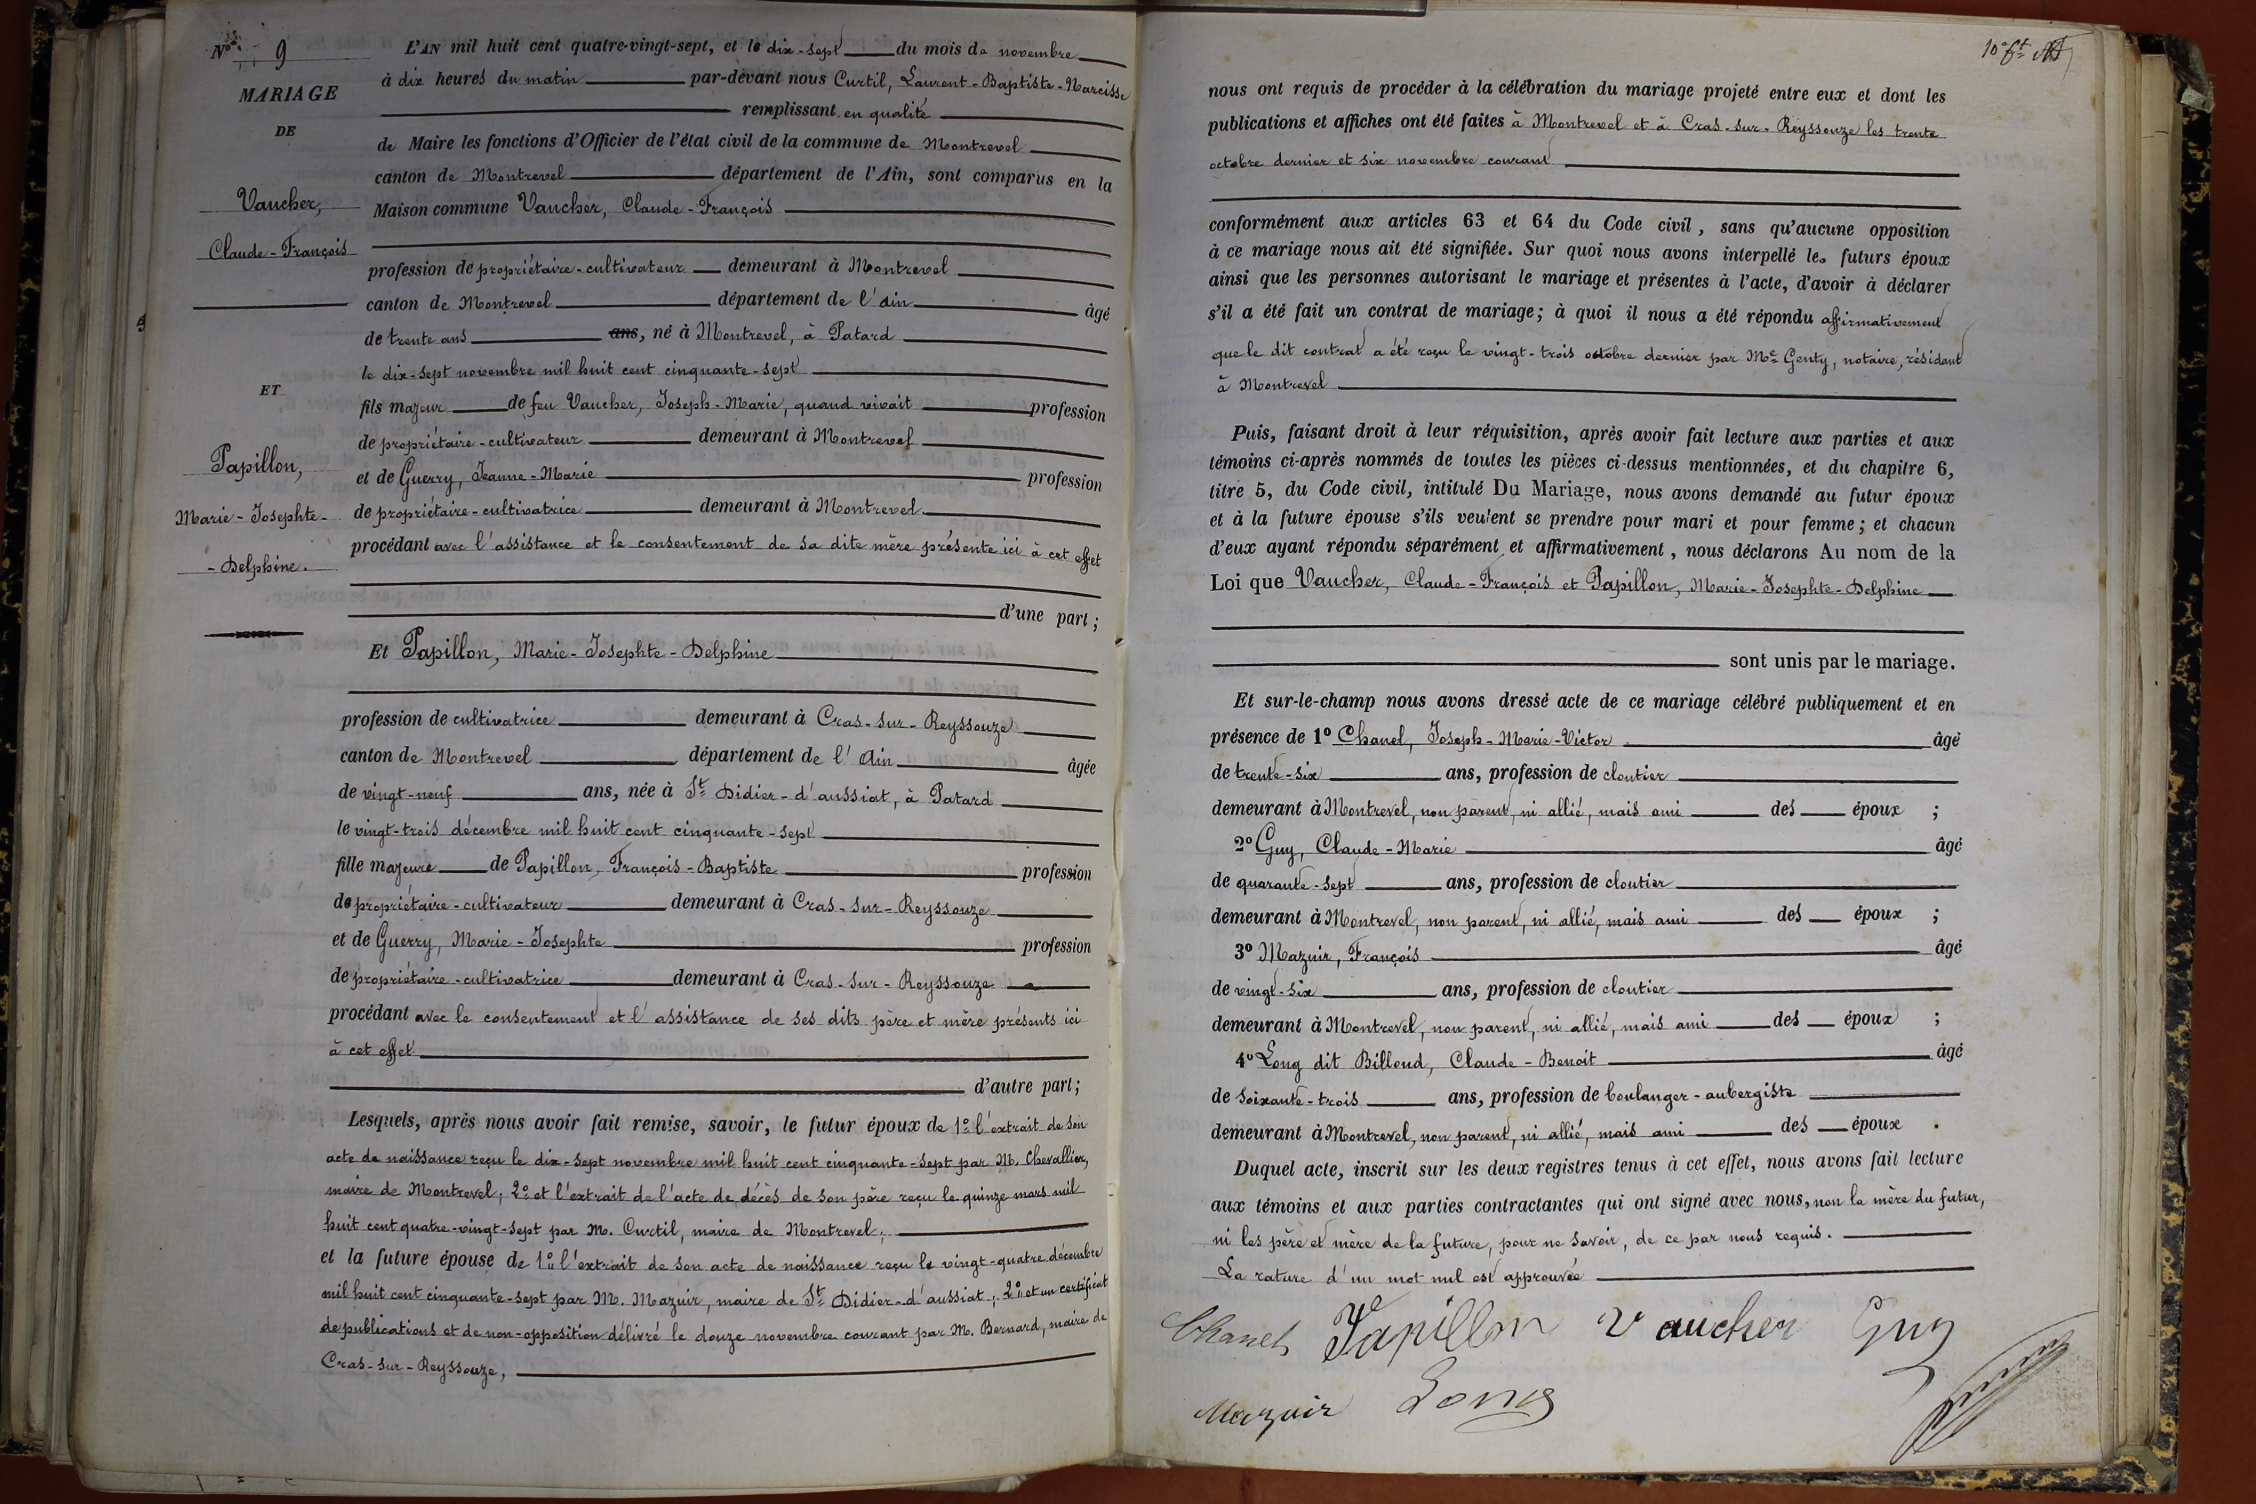 N° 9
MARIAGE
DE
Vaucher,
Claude-François
ET
Papillon,
Marie-Josephte-
-Delphine.
L'AN mil huit cent quatre-vingt-sept, et le dix-sept du mois de novembre
à dix heures du matin par-devant nous Curtil, Laurent-Baptiste-Narcisse
remplissant en qualité
de Maire les fonctions d'Officier de l'état civil de la commune de Montrevel
canton de Montrevel département de l'Ain, sont comparus en la
Maison commune Vaucher, Claude-François
profession de propriétaire-cultivateur demeurant à Montrevel
canton de Montrevel département de l'ain âgé
de trente ans ans, né à Montrevel, à Patard
le dix-sept novembre mil huit cent cinquante-sept
fils majeur de feu Vaucher, Joseph-Marie, quand vivait profession
de propriétaire-cultivateur demeurant à Montrevel
et de Guerry, Jeanne-Marie profession
de propriétaire-cultivatrice demeurant à Montrevel
procédant avec l'assistance et le consentement de sa dite mère présente ici à cet effet
d'une part;
Et Papillon, Marie-Josephte-Delphine
profession de cultivatrice demeurant à Cras-sur-Reyssouze
canton de Montrevel département de l'Ain âgée
de vingt-neuf ans, née à St Didier-d'aussiat, à Patard
le vingt-trois décembre mil huit cent cinquante-sept
fille majeure de Papillon, François-Baptiste profession
de propriétaire-cultivateur demeurant à Cras-sur-Reyssouze
et de Guerry, Marie-Josephte profession
de propriétaire-cultivatrice demeurant à Cras-sur-Reyssouze
procédant avec le consentement et l'assistance de ses dits père et mère présents ici
à cet effet
d'autre part;
Lesquels, après nous avoir fait remise, savoir, le futur époux de 1° l'extrait de son
acte de naissance reçu le dix-sept novembre mil huit cent cinquante-sept par M. Chevallier,
maire de Montrevel; 2° et l'extrait de l'acte de décès de son père reçu le quinze mars mil
huit cent quatre-vingt-sept par M. Curtil, maire de Montrevel;
et la future épouse de 1° l'extrait de son acte de naissance reçu le vingt-quatre décembre
mil huit cent cinquante-sept par M. Mazuir, maire de St Didier-d'aussiat; 2° et un certificat
de publications et de non-opposition délivré le douze novembre courant par M. Bernard, maire de
Cras-sur-Reyssouze,
nous ont requis de procéder à la célébration du mariage projeté entre eux et dont les
publications et affiches ont été faites à Montrevel et à Cras-sur-Reyssouze les trente
octobre dernier et six novembre courant
conformément aux articles 63 et 64 du Code civil, sans qu'aucune opposition
à ce mariage nous ait été signifiée. Sur quoi nous avons interpellé les futurs époux
ainsi que les personnes autorisant le mariage et présentes à l'acte, d'avoir à déclarer
s'il a été fait un contrat de mariage; à quoi il nous a été répondu affirmativement
que le dit contrat a été reçu le vingt-trois octobre dernier par Me Genty, notaire, résidant
à Montrevel
Puis, faisant droit à leur réquisition, après avoir fait lecture aux parties et aux
témoins ci-après nommés de toutes les pièces ci-dessus mentionnées, et du chapitre 6,
titre 5, du Code civil, intitulé Du Mariage, nous avons demandé au futur époux
et à la future épouse s'ils veulent se prendre pour mari et pour femme; et chacun
d'eux ayant répondu séparément et affirmativement, nous déclarons Au nom de la
Loi que Vaucher, Claude-François et Papillon, Marie-Josephte-Delphine
sont unis par le mariage.
Et sur-le-champ nous avons dressé acte de ce mariage célébré publiquement et en
présence de 1° Chanel, Joseph-Marie-Victor âgé
de trente-six ans, profession de cloutier
demeurant à Montrevel, non parent, ni allié, mais ami des époux ;
2° Guy, Claude-Marie âgé
de quarante-sept ans, profession de cloutier
demeurant à Montrevel, non parent, ni allié, mais ami des époux ;
3° Mazuir, François âgé
de vingt-six ans, profession de cloutier
demeurant à Montrevel, non parent, ni allié, mais ami des époux ;
4° Long dit Billoud, Claude-Benoit âgé
de soixante-trois ans, profession de boulanger-aubergiste
demeurant à Montrevel, non parent, ni allié, mais ami des époux .
Duquel acte, inscrit sur les deux registres tenus à cet effet, nous avons fait lecture
aux témoins et aux parties contractantes qui ont signé avec nous, non la mère du futur,
ni les père et mère de la future, pour ne savoir, de ce par nous requis.
La rature d'un mot nul est approuvée
Chanel Papillon Vaucher Guy
Mazuir Long